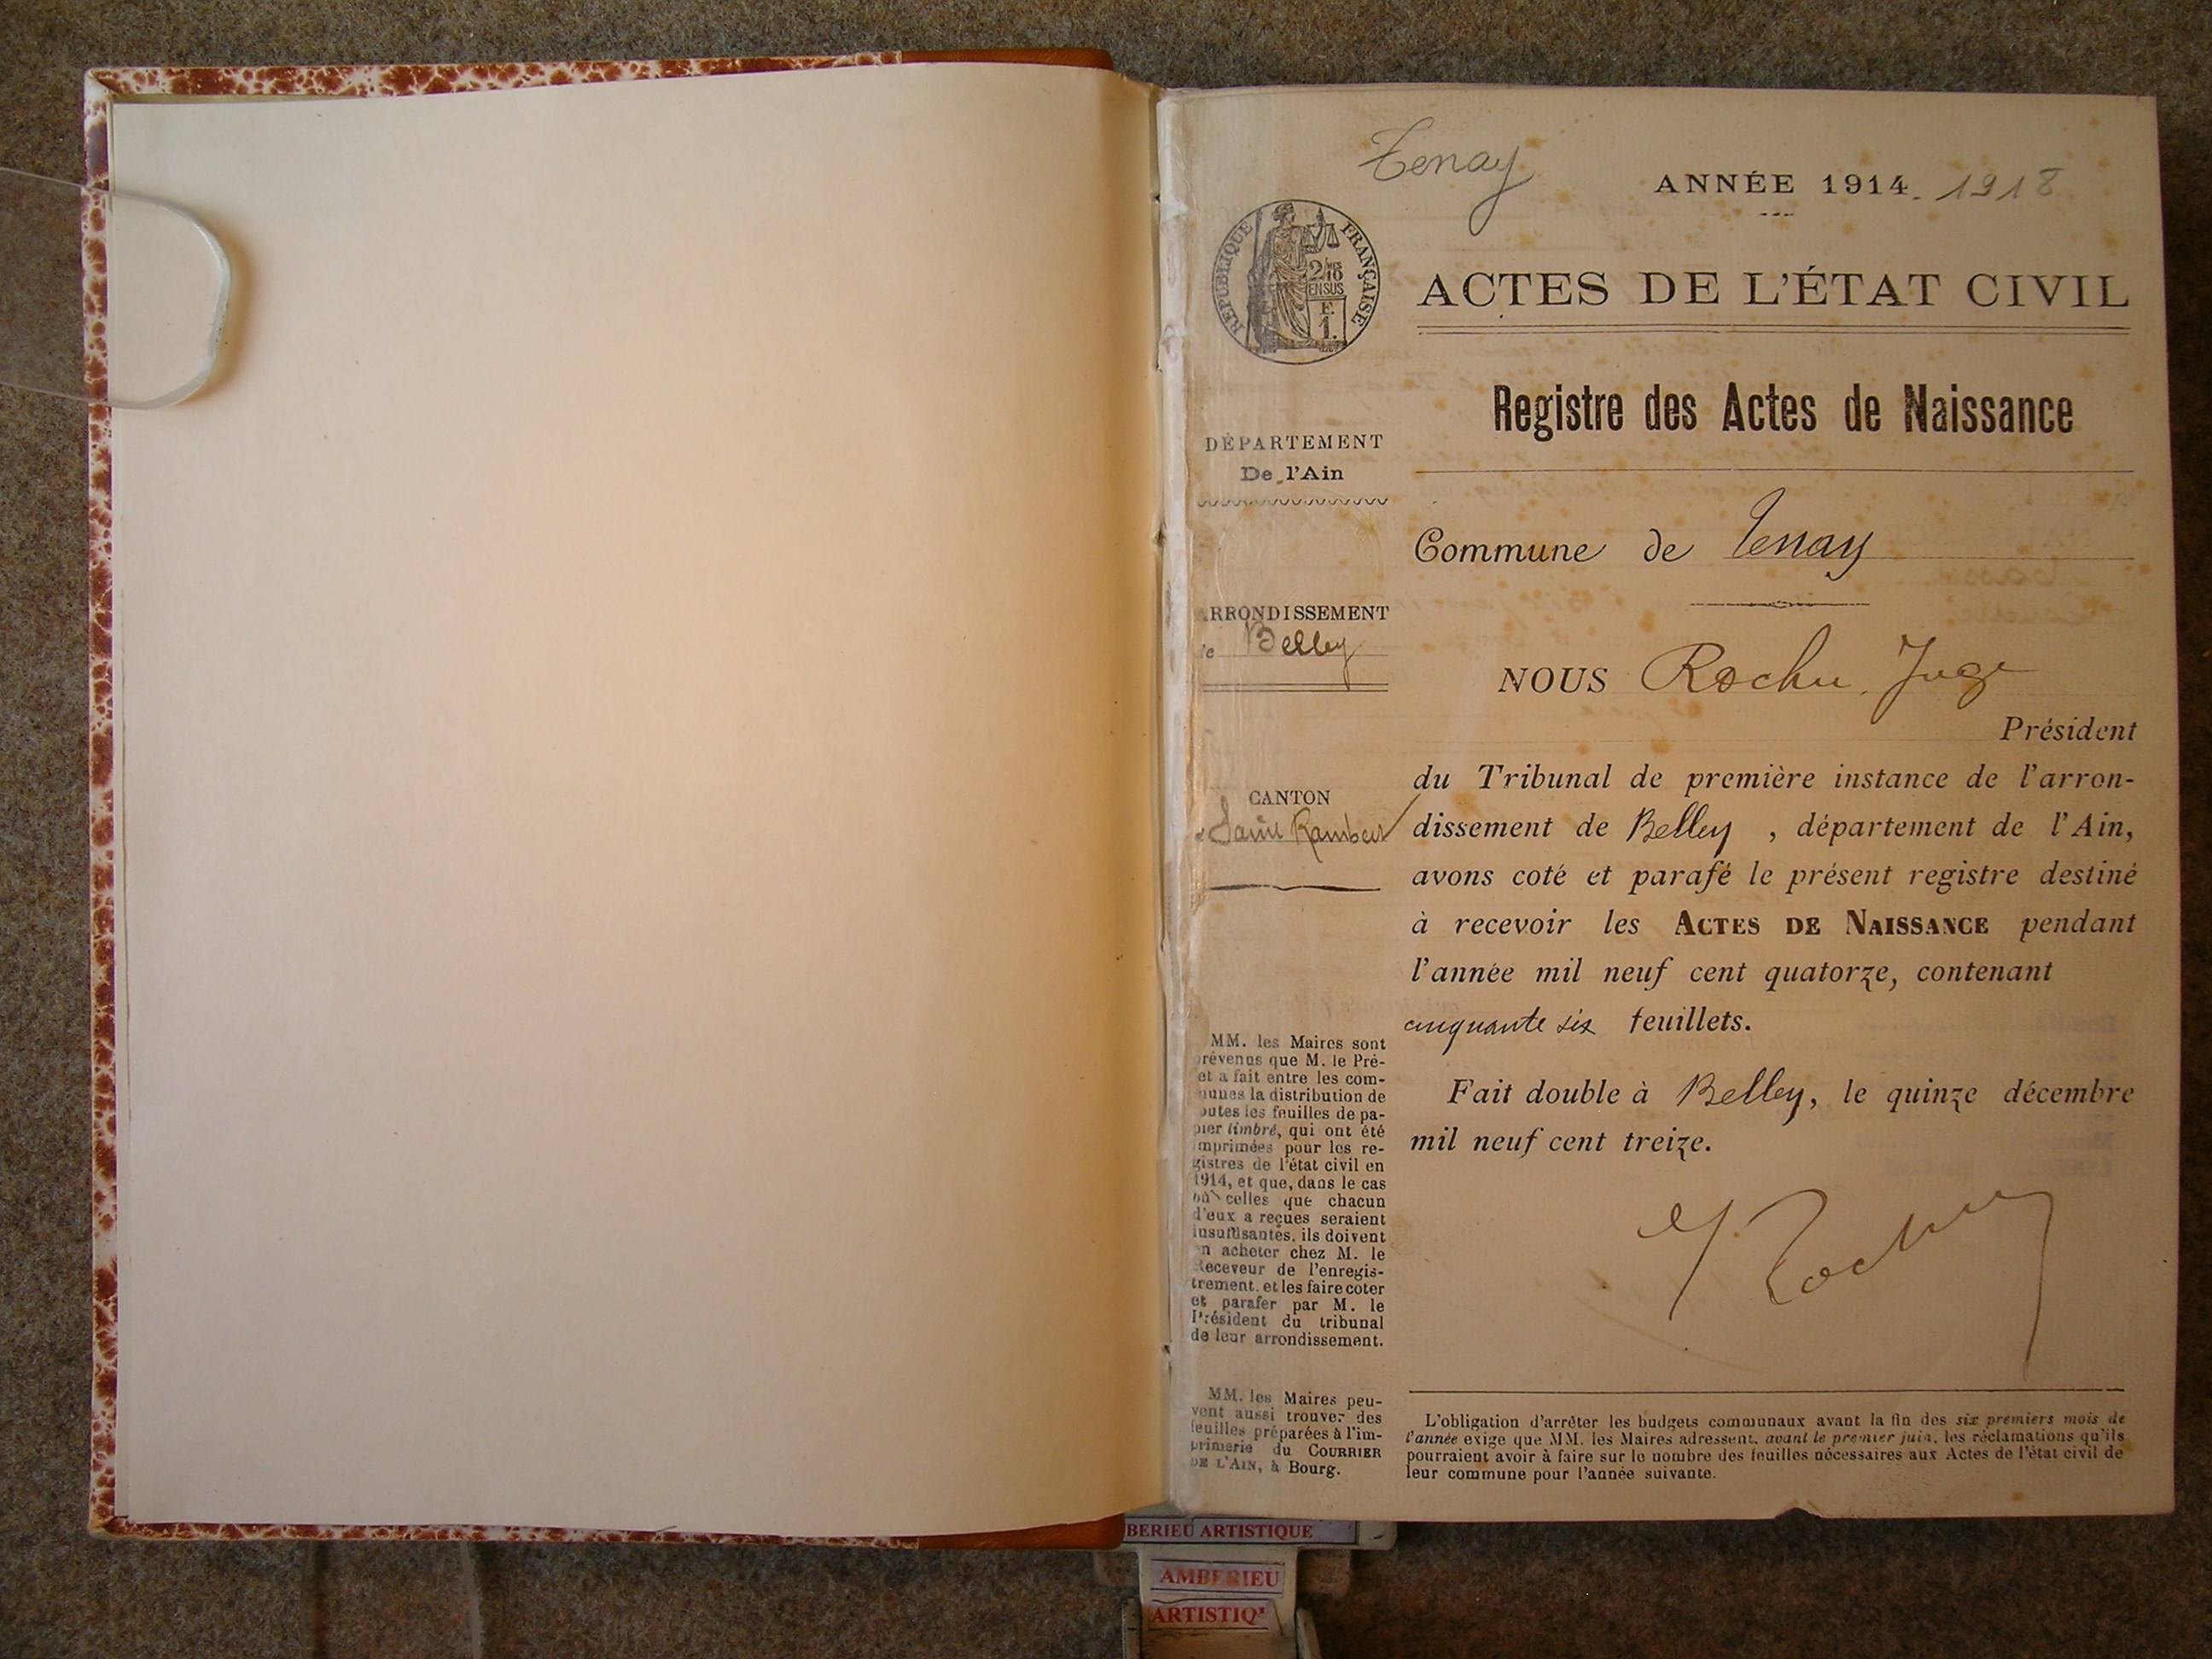 Tenay
ANNÉE 1914. 1918
RÉPUBLIQUE FRANÇAISE
2/10 MES
EN SUS
F.
1.
ACTES DE L'ÉTAT CIVIL
Registre des Actes de Naissance
DÉPARTEMENT
De l'Ain
Commune de Tenay
ARRONDISSEMENT
de Belley
NOUS Rochu, Juge
Président
CANTON
Saint Rambert
du Tribunal de première instance de l'arron-
dissement de Belley, département de l'Ain,
avons coté et parafé le présent registre destiné
à recevoir les ACTES DE NAISSANCE pendant
l'année mil neuf cent quatorze, contenant
cinquante six feuillets.
Fait double à Belley, le quinze décembre
mil neuf cent treize.
Rochu
MM. les Maires sont
prévenus que M. le Pré-
fet a fait entre les com-
munes la distribution de
toutes les feuilles de pa-
pier timbré, qui ont été
imprimées pour les re-
gistres de l'état civil en
1914, et que, dans le cas
où celles que chacun
d'eux a reçues seraient
insuffisantes, ils doivent
en acheter chez M. le
Receveur de l'enregis-
trement, et les faire coter
et parafer par M. le
Président du tribunal
de leur arrondissement.
MM. les Maires peu-
vent aussi trouver des
feuilles préparées à l'im-
primerie du COURRIER
DE L'AIN, à Bourg.
L'obligation d'arrêter les budgets communaux avant la fin des six premiers mois de
l'année exige que MM. les Maires adressent, avant le premier juin, les réclamations qu'ils
pourraient avoir à faire sur le nombre des feuilles nécessaires aux Actes de l'état civil de
leur commune pour l'année suivante.
BERIEU ARTISTIQUE
AMBERIEU
ARTISTIQ